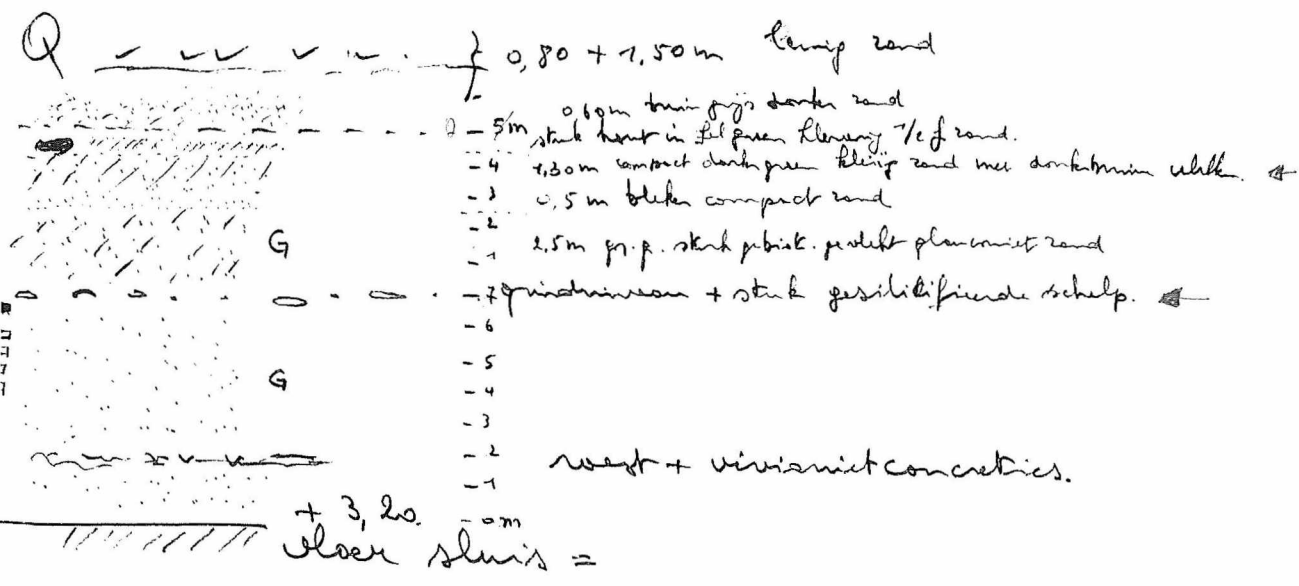 Q
0,80 + 1,50 m lemig zand
0,60m bruin grijs donker zand
5m stuk hout in fel groen kleurig zand.
4 1,30m compact donkergroen kleiig zand met donkerbruin
3 0,5 m bleker compact zand
2
G 2,5m gevlekt glauconiet zand
1
7 grindniveau + stuk gesilikifieerde schelp.
6
5
G
4
3
2 roest + vivianiet concreties.
1
+ 3,20. 0m
vloer sluis =